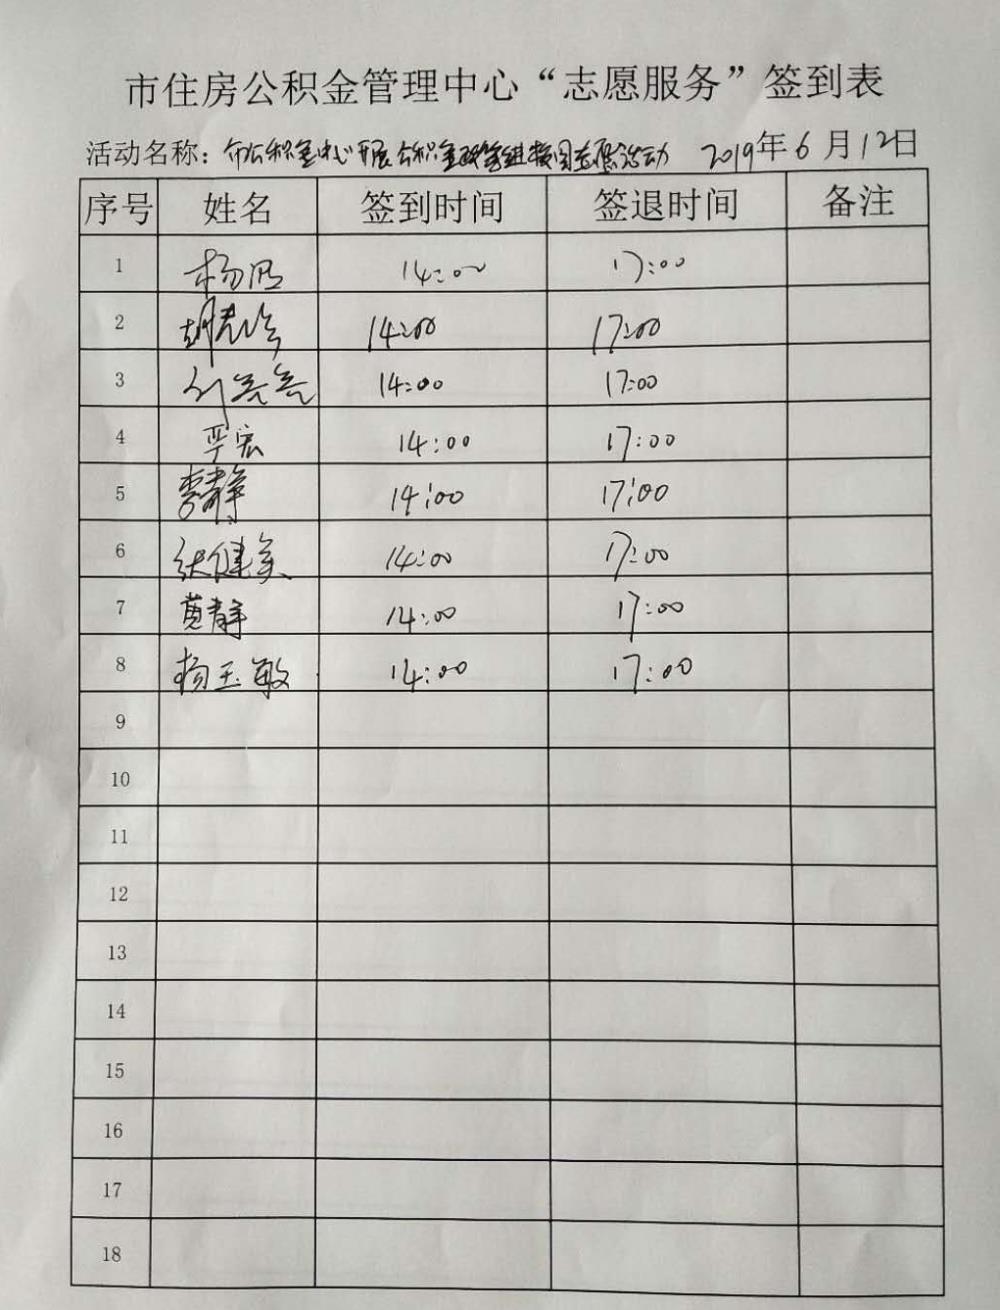 市住房公积金管理中心“志愿服务”签到表
活动名称：市公积金中心开展公积金政策进校园志愿活动 2019年6月12日
序号 姓名 签到时间 签退时间 备注
1 杨 14:00 17:00
2 胡 14:00 17:00
3 刘亮亮 14:00 17:00
4 严宏 14:00 17:00
5 李静 14:00 17:00
6 张健美 14:00 17:00
7 黄静 14:00 17:00
8 杨玉敏 14:00 17:00
9
10
11
12
13
14
15
16
17
18